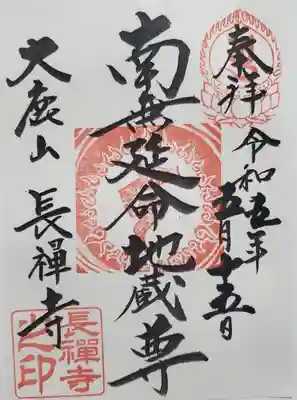 奉拝
令和五年
五月十五日
南無延命地蔵尊
大鹿山 長禅寺
長禪寺
之印